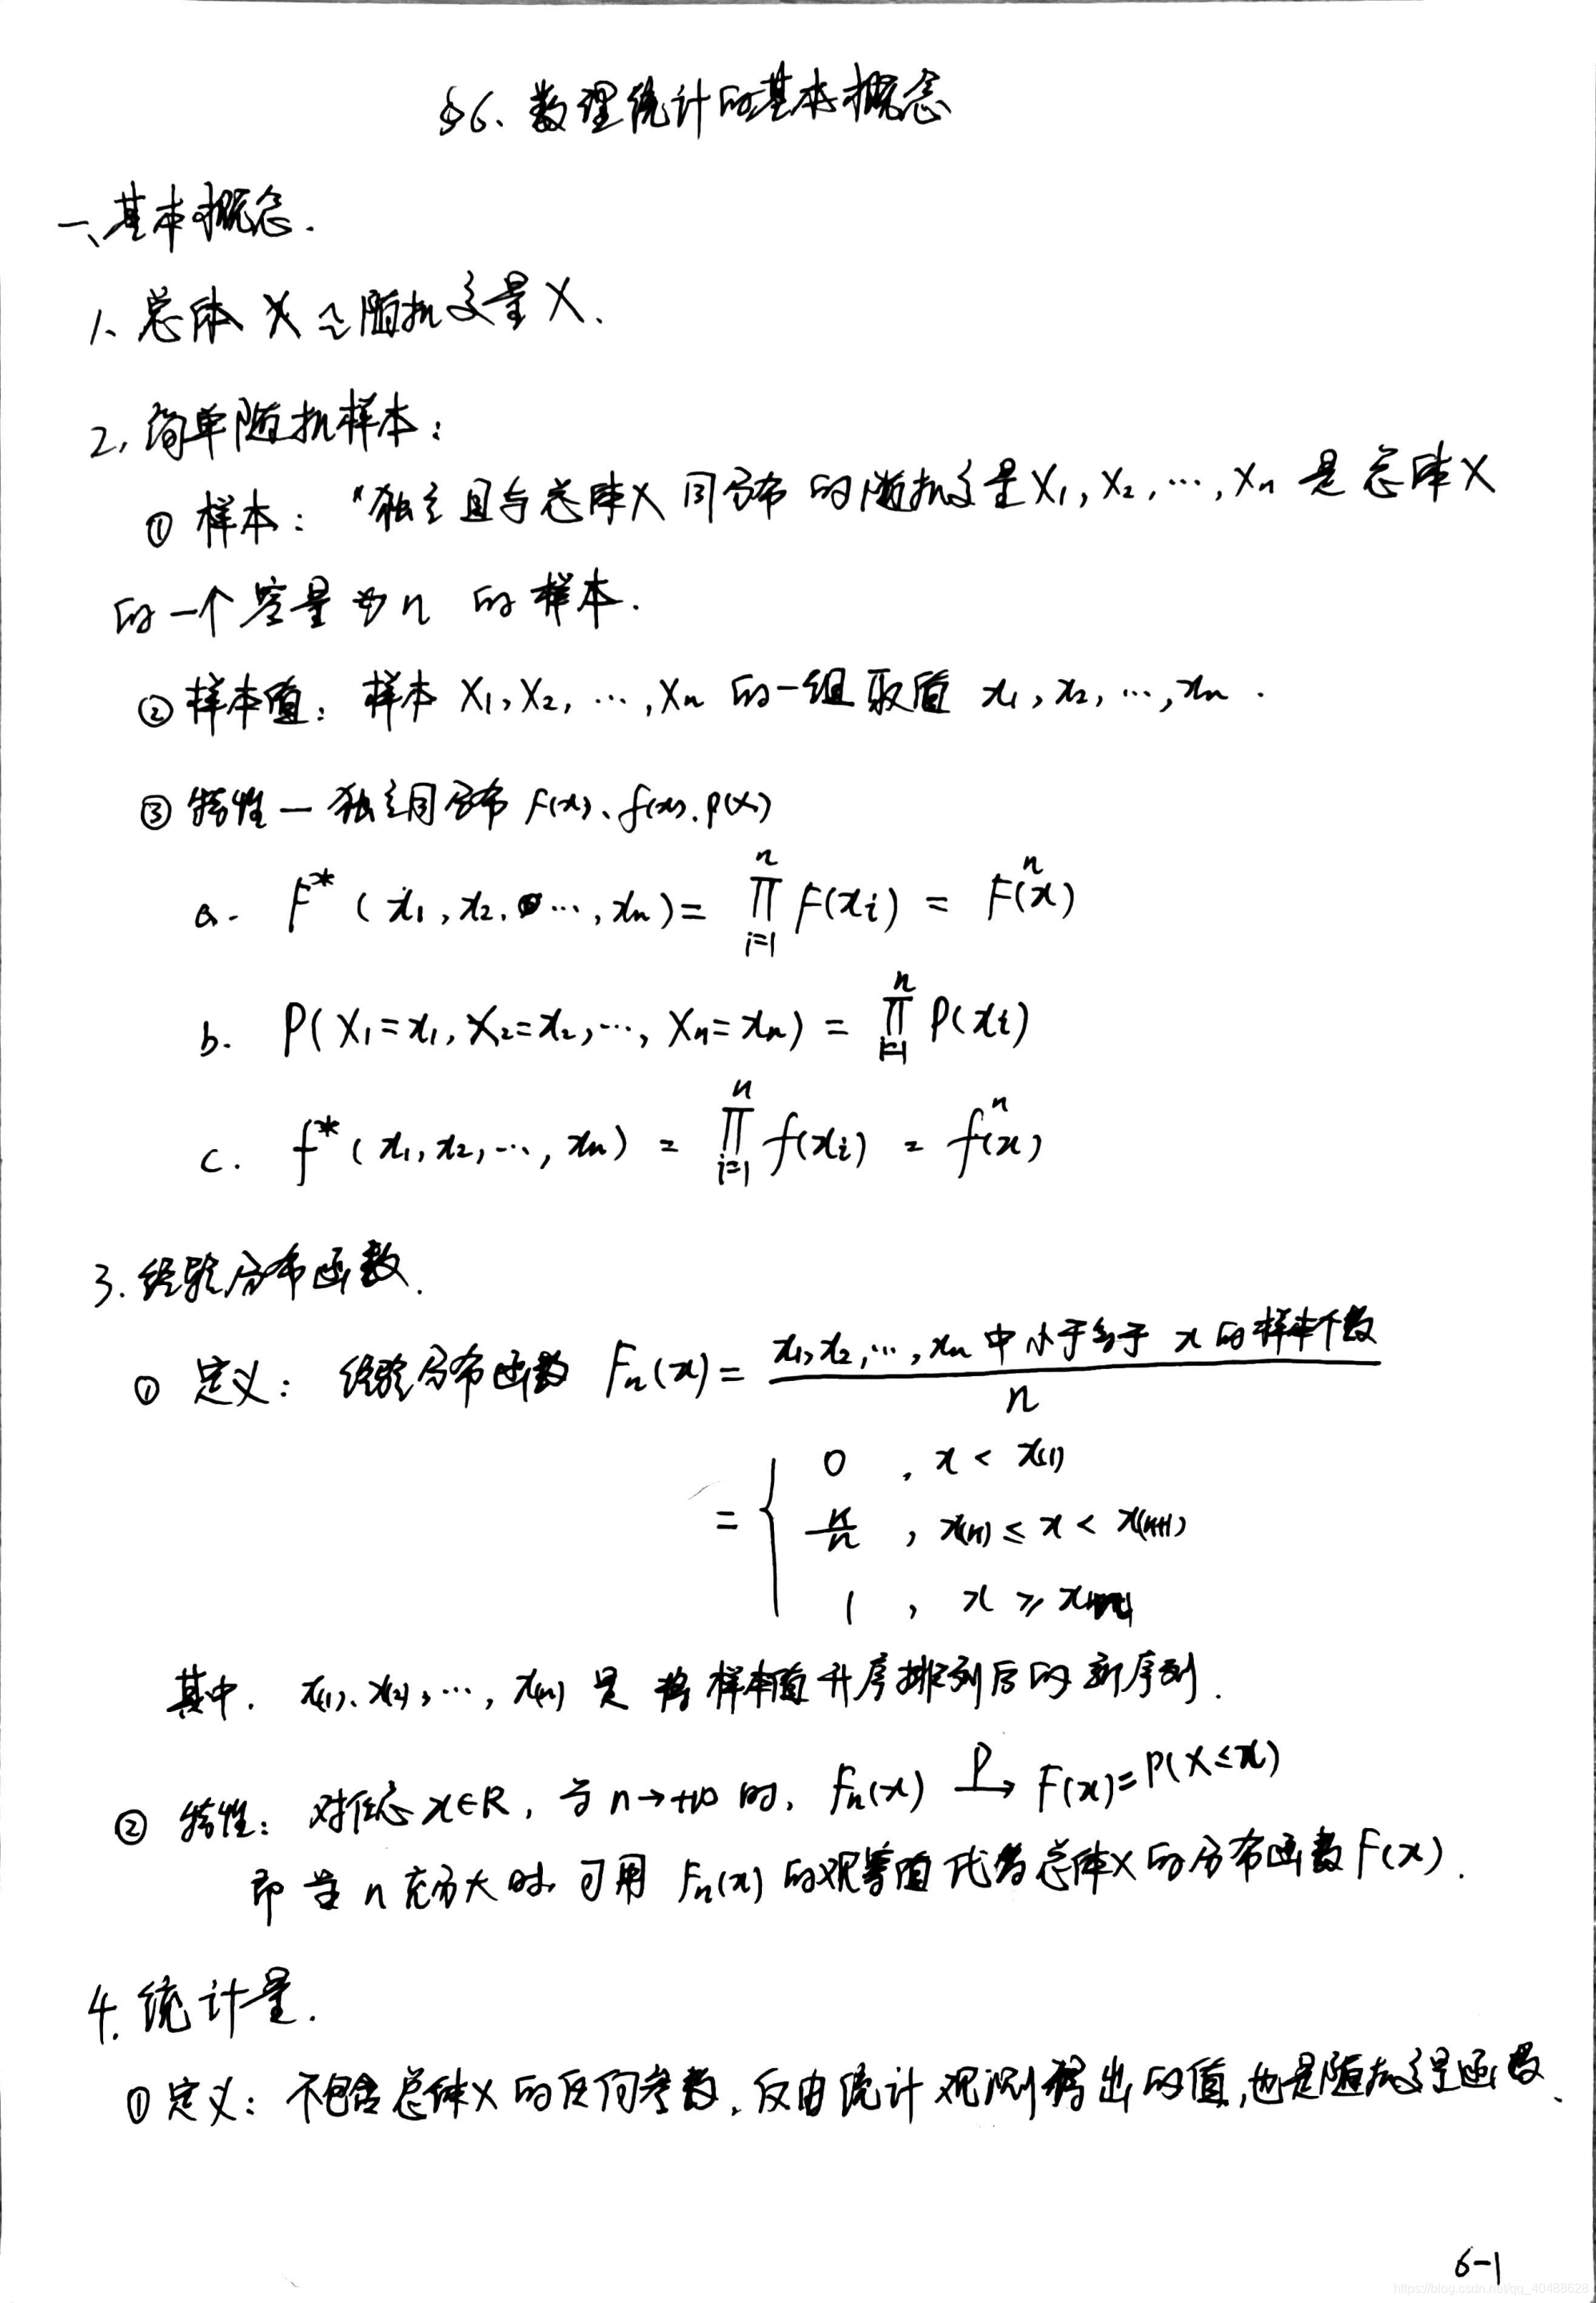 §6、数理统计的基本概念
一、基本概念.
1、总体 X ≙ 随机变量 X.
2, 简单随机样本:
① 样本: "独立且与总体X 同分布 的随机变量X₁, X₂, …, Xₙ 是总体X
的一个容量为n 的样本.
② 样本值: 样本 X₁, X₂, …, Xₙ 的一组取值 x₁, x₂, …, xₙ .
③ 特性 — 独立同分布 F(x)、f(x)、P(X)
a. F*(x₁, x₂, …, xₙ) = ∏ᵢ₌₁ⁿ F(xᵢ) = Fⁿ(x)
b. P(X₁=x₁, X₂=x₂, …, Xₙ=xₙ) = ∏ᵢ₌₁ⁿ P(xᵢ)
c. f*(x₁, x₂, …, xₙ) = ∏ᵢ₌₁ⁿ f(xᵢ) = fⁿ(x)
3. 经验分布函数.
① 定义: 经验分布函数 Fₙ(x) = x₁, x₂, …, xₙ 中小于等于 x 的样本个数 / n
= { 0 , x < x₍₁₎
k/n , x₍ₖ₎ ≤ x < x₍ₖ₊₁₎
1 , x ≥
其中. x₍₁₎、x₍₂₎, …, x₍ₙ₎ 是 将 样本值升序排列后的新序列.
② 特性: 对任意 x∈R, 当 n→+∞ 时, Fₙ(x) —P→ F(x)=P(X≤x)
即 当 n 充分大时, 可用 Fₙ(x) 的观察值代替总体X的分布函数F(x).
4. 统计量.
① 定义: 不包含总体X 的任何参数, 仅由统计观测得出的值, 也是随机变量函数.
6-1
https://blog.csdn.net/qq_40488628